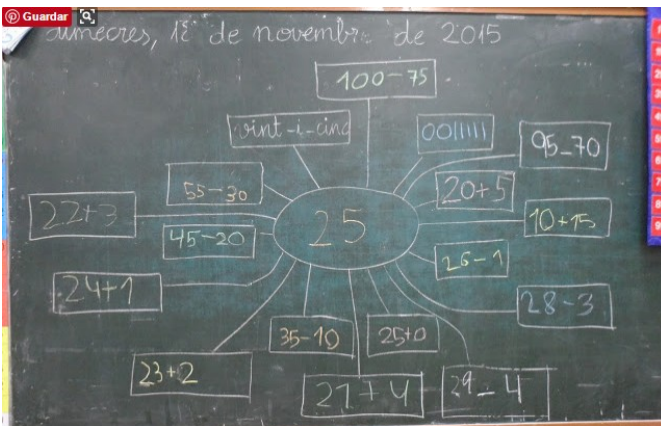 Guardar
dimecres, 18 de novembre de 2015
100-75
vint-i-cinc
00|||||
95-70
55-30
20+5
22+3
10+15
45-20
25
26-1
24+1
28-3
35-10
25+0
23+2
21+4
29-4